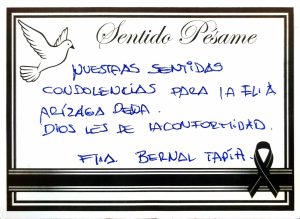 Sentido Pésame
NUESTRAS SENTIDAS
CONDOLENCIAS PARA LA FLIA
ARÍZAGA
DIOS LES DE LACONFORMIDAD.
FLIA. BERNAL TAPIA.